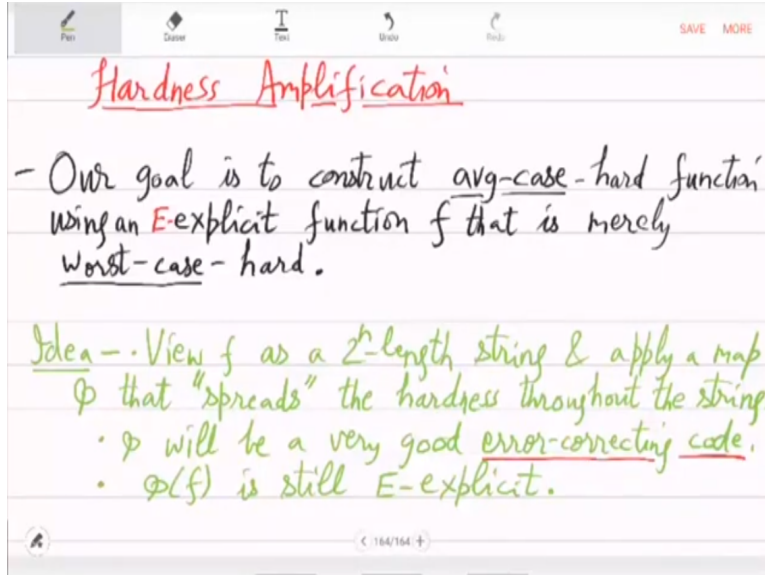 Pen Eraser Text Undo Redo SAVE MORE
Hardness Amplification
- Our goal is to construct avg-case-hard function
using an E-explicit function f that is merely
worst-case-hard.
Idea - · View f as a 2ⁿ-length string & apply a map
φ that "spreads" the hardness throughout the string
· φ will be a very good error-correcting code.
· φ(f) is still E-explicit.
< 164/164 +